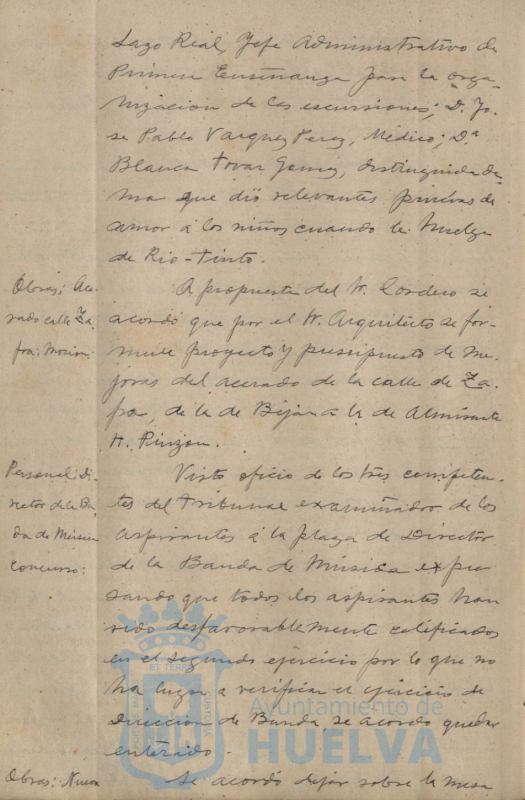 Lazo Real, Jefe Administrativo de
Primera Enseñanza para la orga-
nizacion de las escursiones; D. Jo-
se Pablo Vazquez Perez, Médico; Dª
Blanca Tovar Gomez, distinguida da-
ma que dió relevantes pruebas de
amor á los niños cuando la huelga
de Rio-Tinto.
Obras: Ace-
rado calle Za-
fra: Mocion.
A propuesta del Sr. Cordero se
acordó que por el Sr. Arquitecto se for-
mule proyecto y presupuesto de me-
joras del acerado de la calle de Za-
fra, de la de Béjar á la de Almirante
H. Pinzon.
Personal: Di-
rector de la Ban-
da de Música
concurso:
Visto oficio de los tres competen-
tes del Tribunal examinador de los
aspirantes á la plaza de Director
de la Banda de Música expre-
sando que todos los aspirantes han
sido desfavorablemente calificados
en el segundo ejercicio por lo que no
ha lugar a verificar el ejercicio de
Direccion de Banda, se acordó quedar
enterado.
Obras: Nueva
Se acordó dejar sobre la mesa
Ayuntamiento de
HUELVA